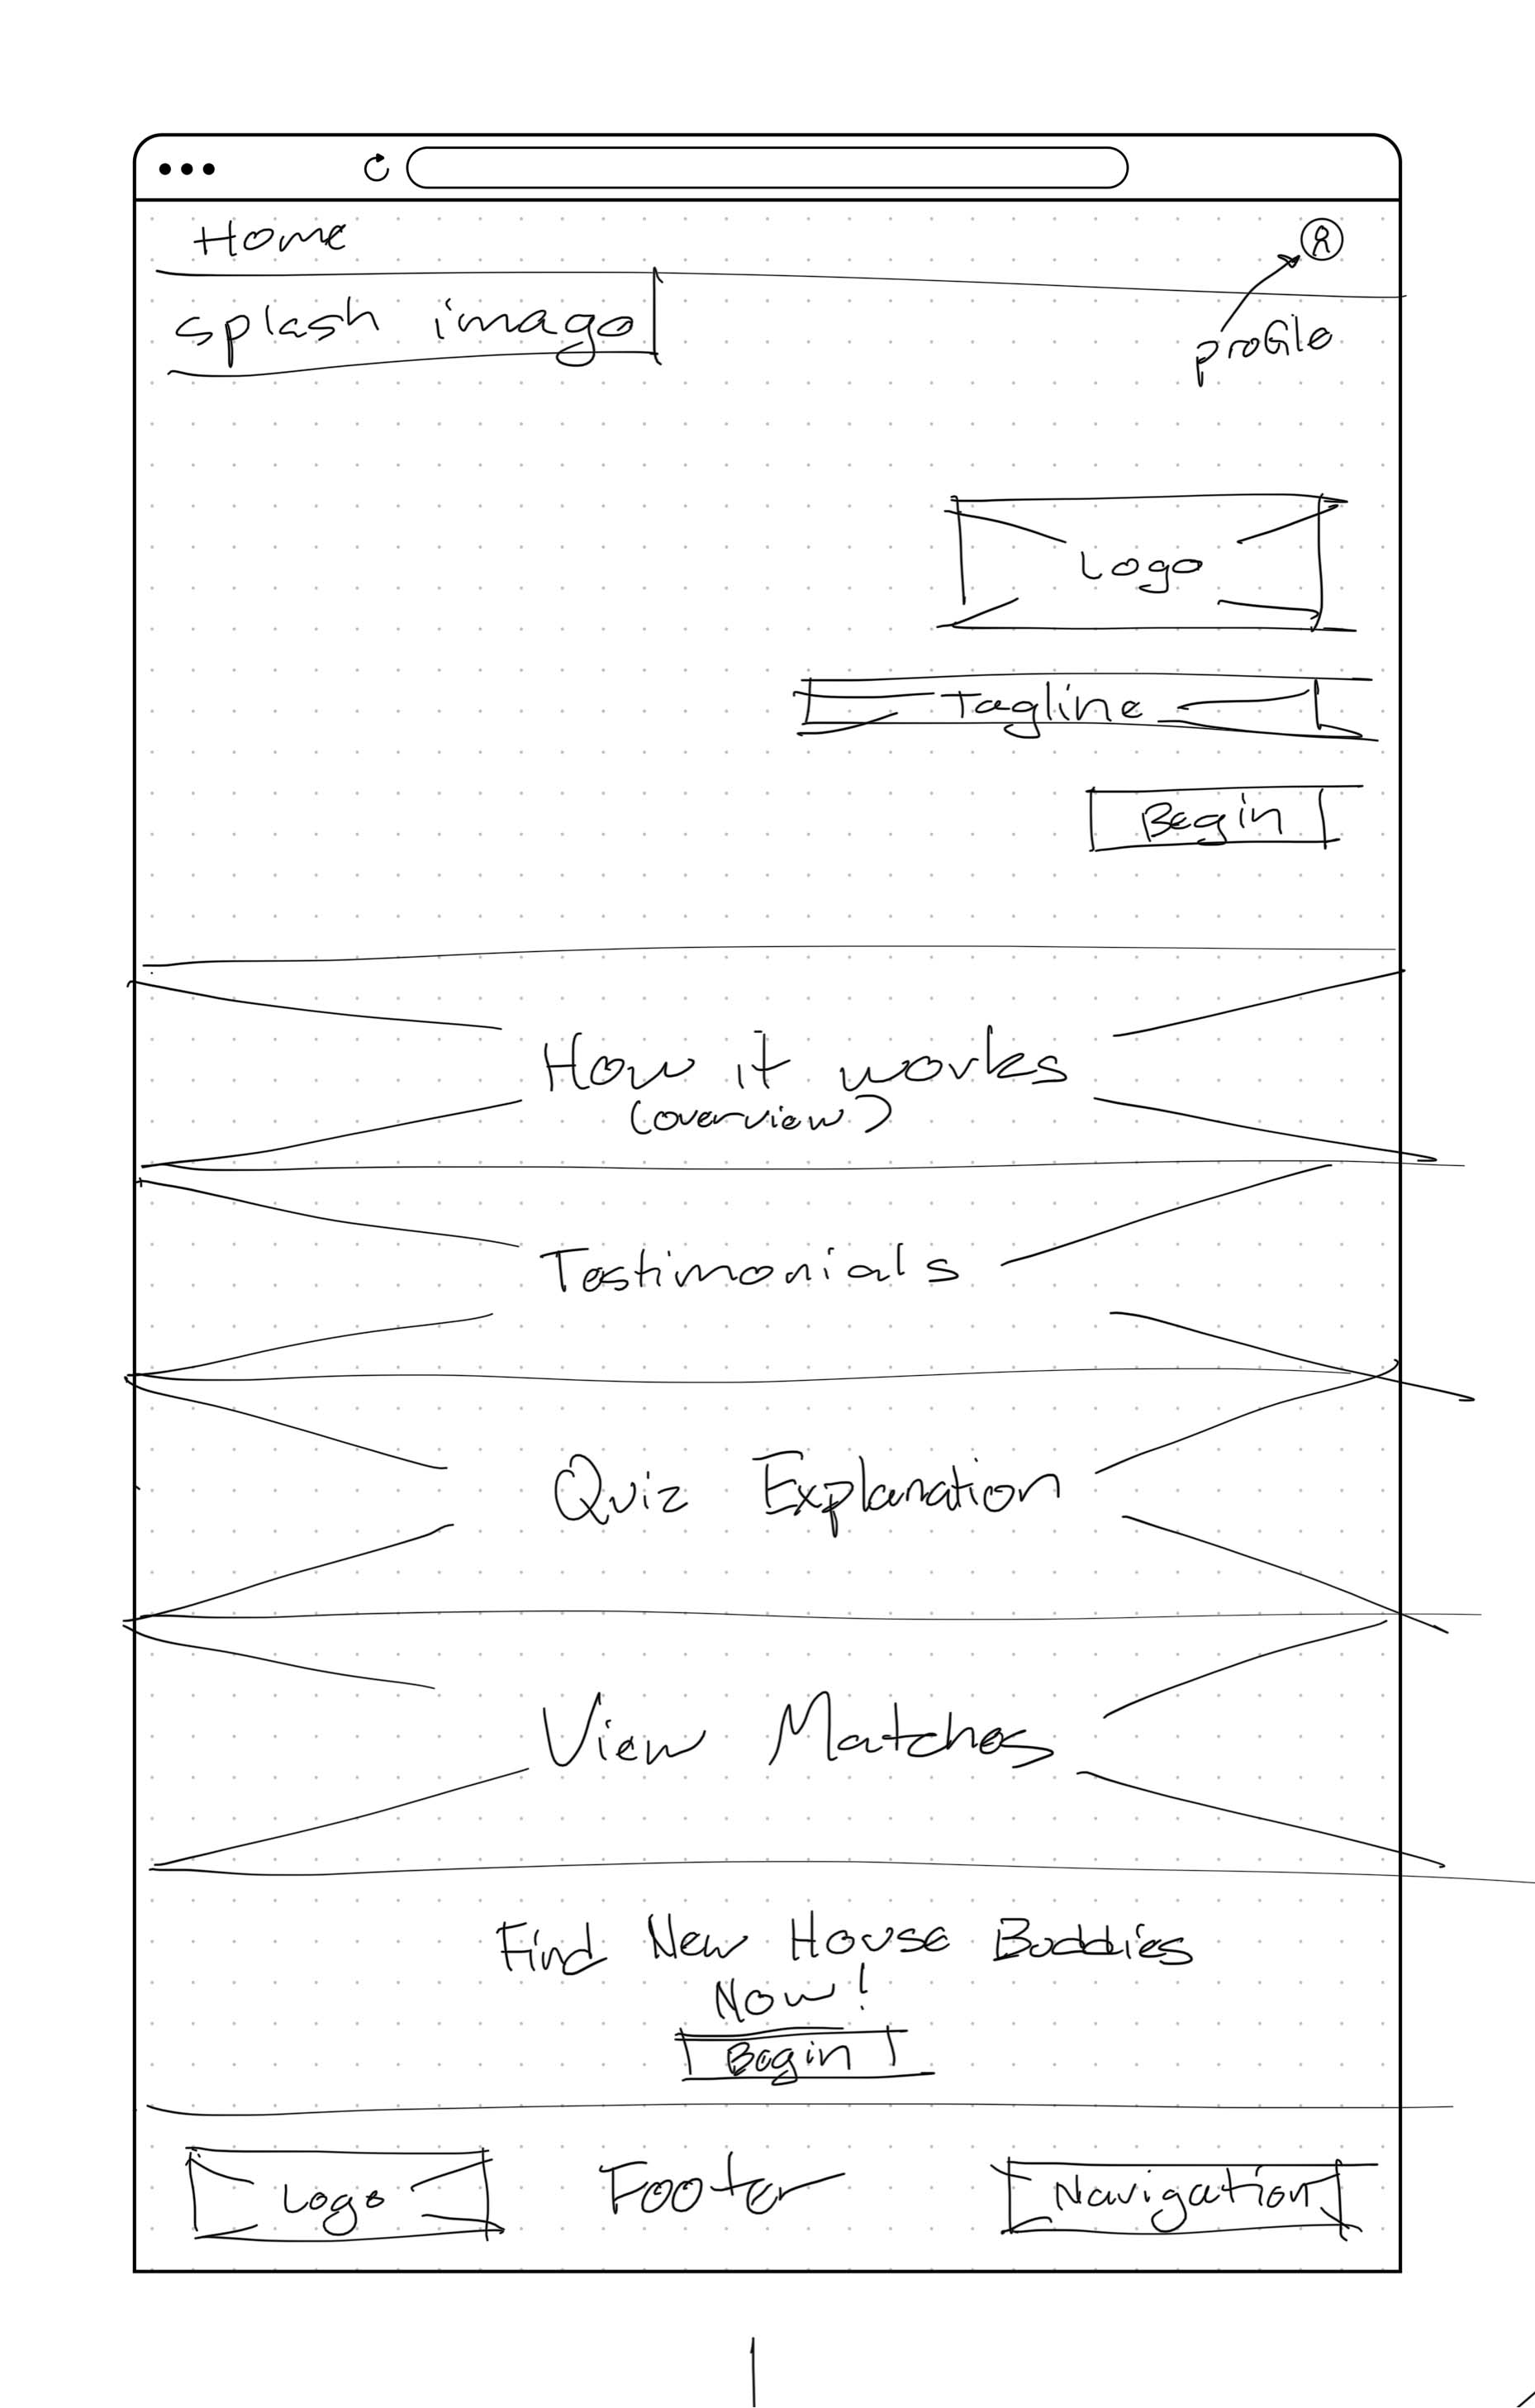 Home
splash image
profile
Logo
Tagline
Begin
How it works
(overview)
Testimonials
Quiz Explanation
View Matches
Find New House Buddies
Now!
Begin
Logo
Footer
Navigation